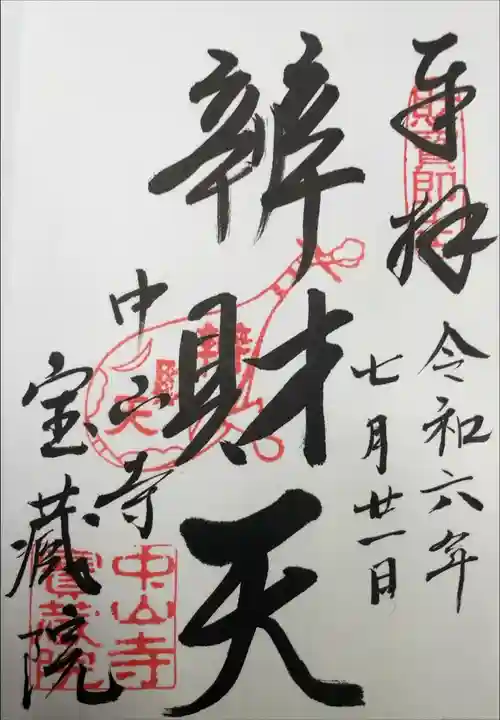 奉拝
令和六年
七月廿一日
辨財天
中山寺
宝蔵院
中山寺
寳蔵院